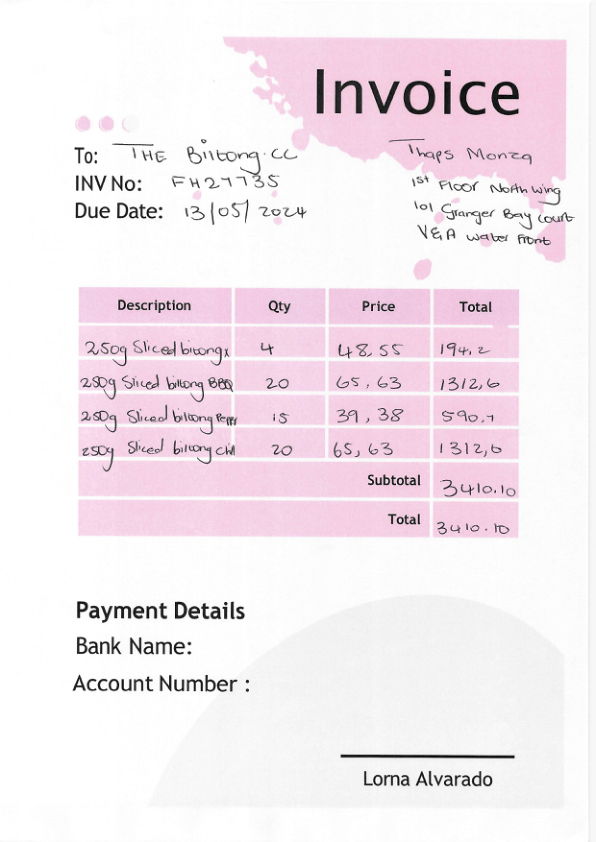 Invoice
To: THE Biltong.cc
INV No: FH27735
Due Date: 13/05/2024
Thaps Monza
1st Floor North wing
101 Granger Bay Court
V&A Water Front
Description Qty Price Total
250g Sliced bitongx 4 48,55 194,2
250g Sliced biltong BBQ 20 65,63 1312,6
250g Sliced biltong Pepper 15 39,38 590,7
250g Sliced biltong Chil 20 65,63 1312,6
Subtotal 3410.10
Total 3410.10
Payment Details
Bank Name:
Account Number :
Lorna Alvarado